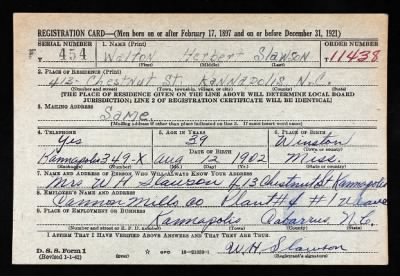 REGISTRATION CARD—(Men born on or after February 17, 1897 and on or before December 31, 1921)
SERIAL NUMBER 1. NAME (Print) ORDER NUMBER
454 Walton Herbert Slawson 11438
(First) (Middle) (Last)
2. PLACE OF RESIDENCE (Print)
412 Chestnut St. Kannapolis N.C.
(Number and street) (Town, township, village, or city) (County) (State)
[THE PLACE OF RESIDENCE GIVEN ON THE LINE ABOVE WILL DETERMINE LOCAL BOARD
JURISDICTION; LINE 2 OF REGISTRATION CERTIFICATE WILL BE IDENTICAL]
3. MAILING ADDRESS
Same
[Mailing address if other than place indicated on line 2. If same insert word same]
4. TELEPHONE 5. AGE IN YEARS 6. PLACE OF BIRTH
Yes 39 Winston
DATE OF BIRTH (Town or county)
Kannapolis 349-X Aug 12 1902 Miss.
(Exchange) (Number) (Mo.) (Day) (Yr.) (State or country)
7. NAME AND ADDRESS OF PERSON WHO WILL ALWAYS KNOW YOUR ADDRESS
Mrs W H Slawson 413 Chestnut St Kannapolis
8. EMPLOYER'S NAME AND ADDRESS
Cannon Mills Co Plant # 1 # 1 Weave
9. PLACE OF EMPLOYMENT OR BUSINESS
Kannapolis Cabarrus N.C.
(Number and street or R. F. D. number) (Town) (County) (State)
I AFFIRM THAT I HAVE VERIFIED ABOVE ANSWERS AND THAT THEY ARE TRUE.
D. S. S. Form 1
(Revised 1-1-42) GPO 16—21630-1 W.H. Slawson
(Registrant's signature)